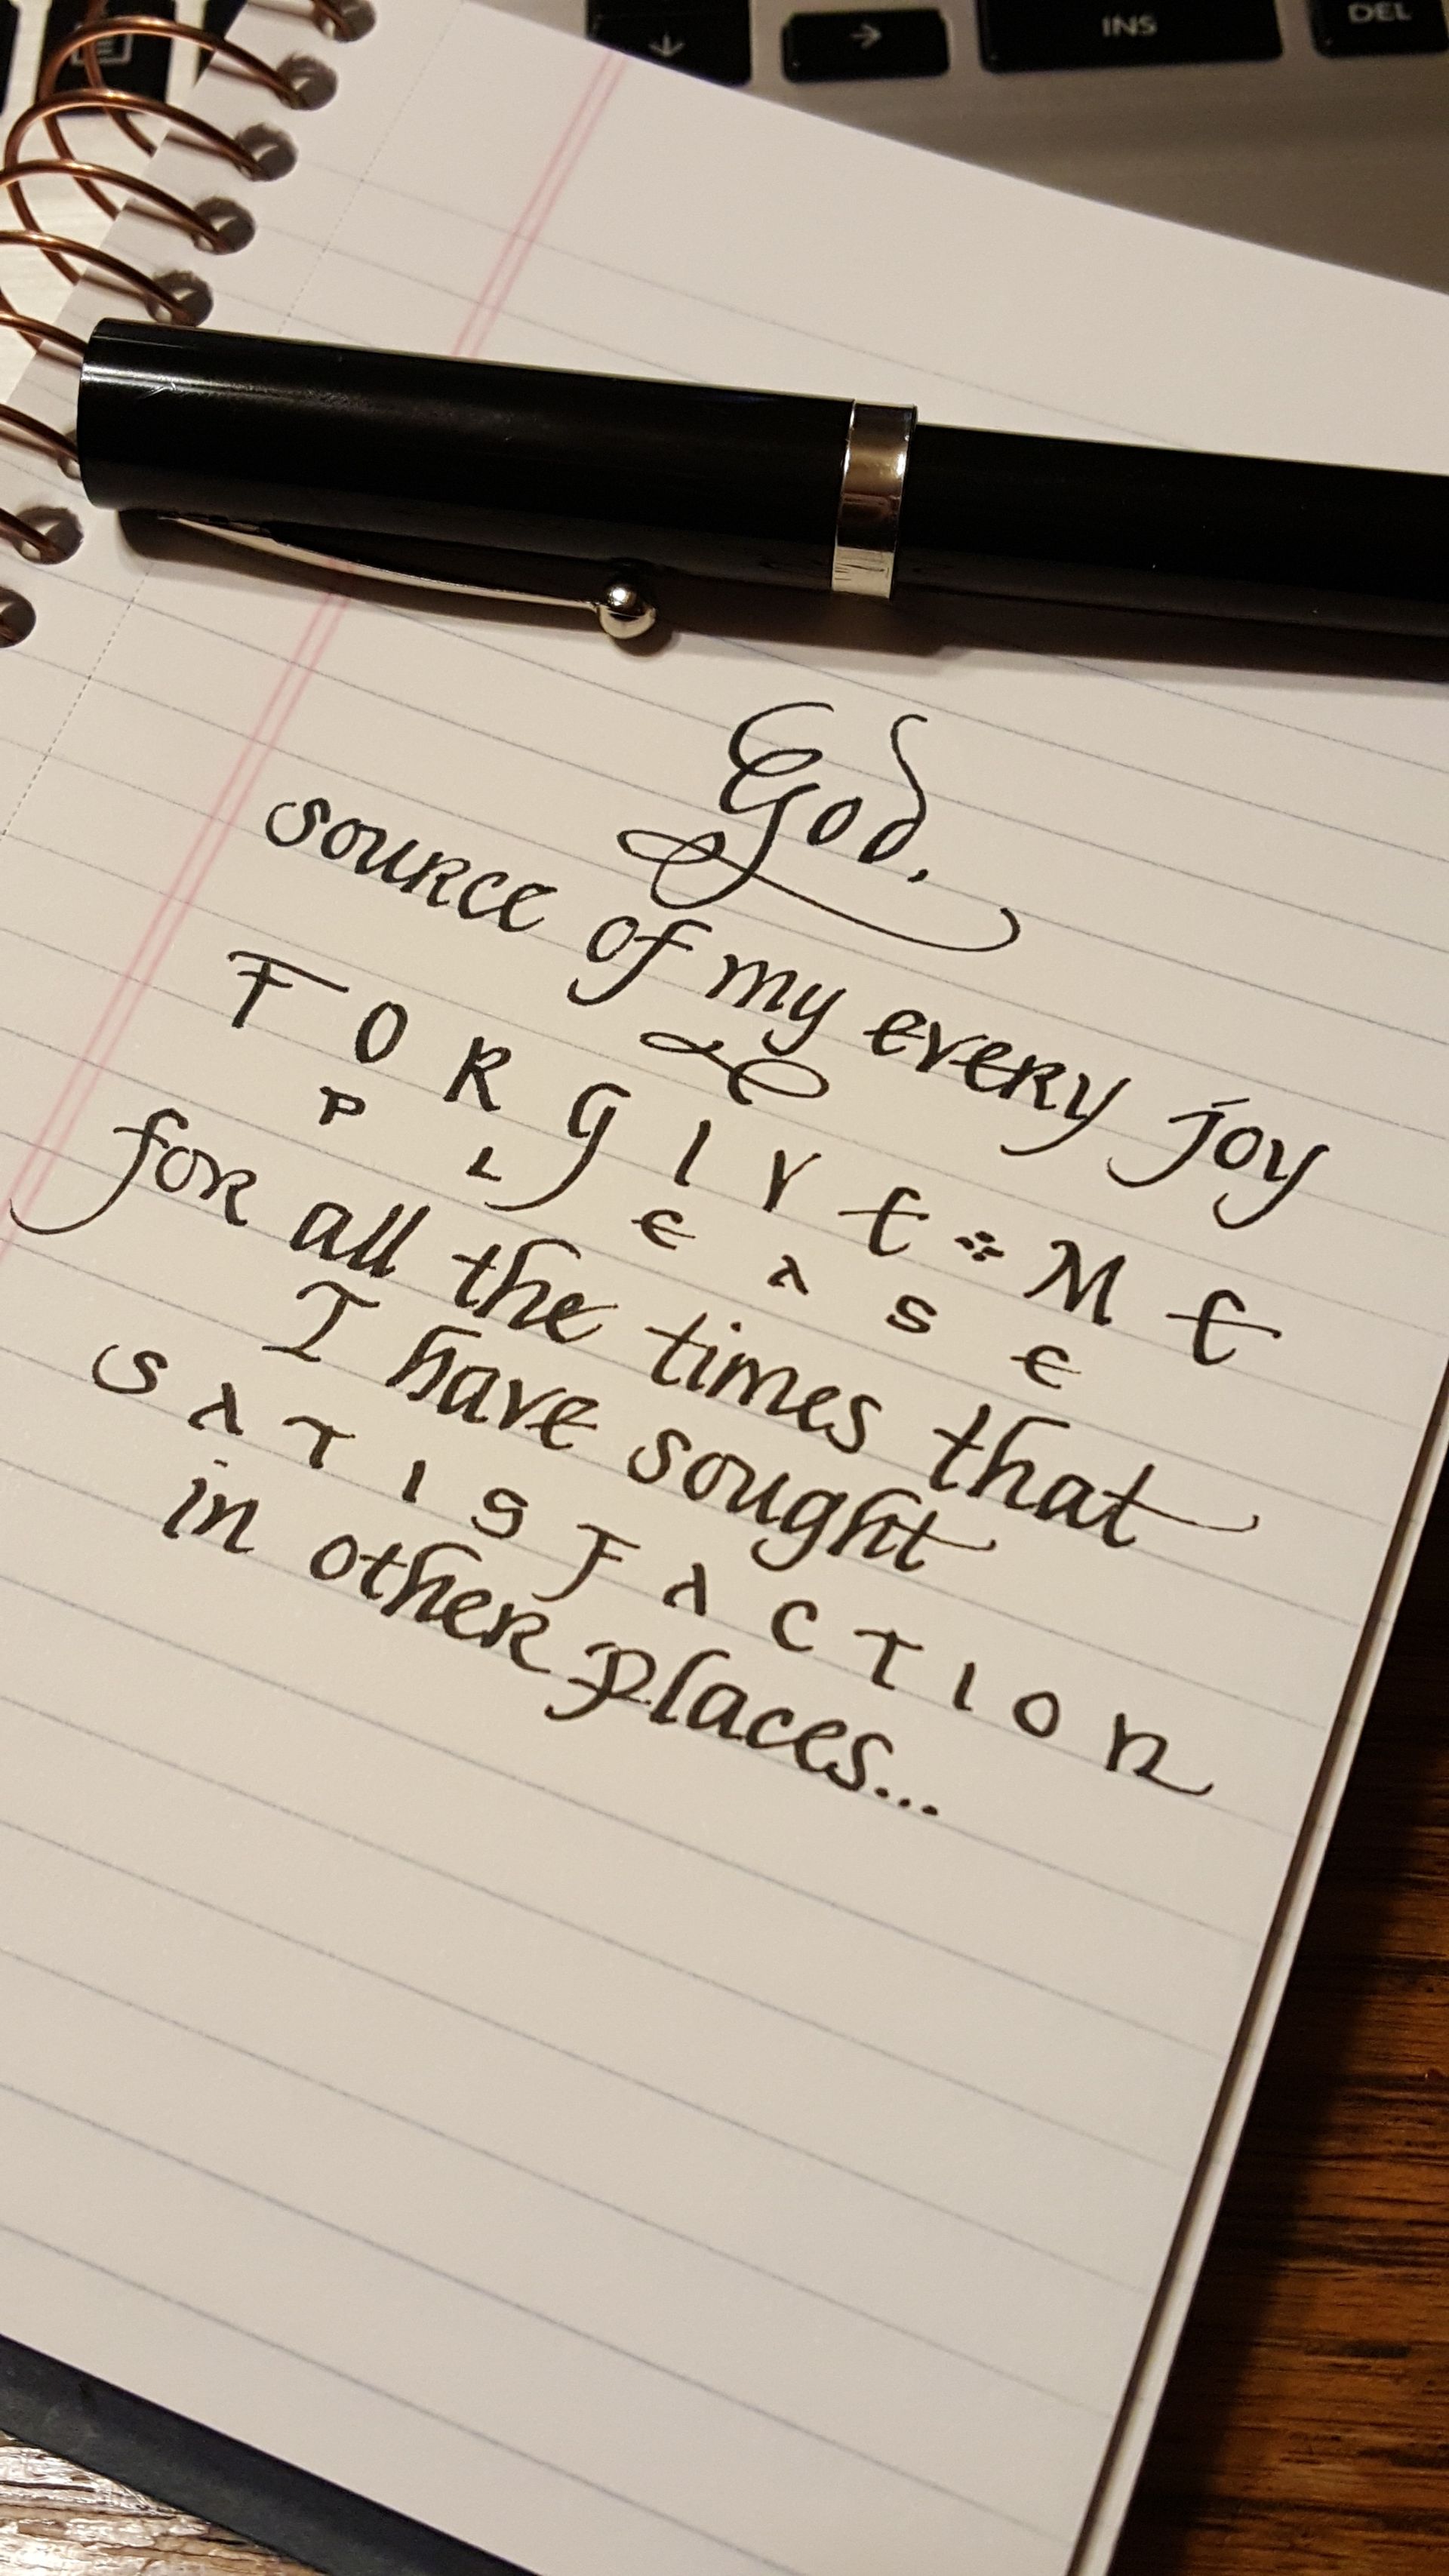 INS
DEL
God.
source of my every joy
FORGIVE ⁘ ME
PLEASE
for all the times that
I have sought
SATISFACTION
in other places...